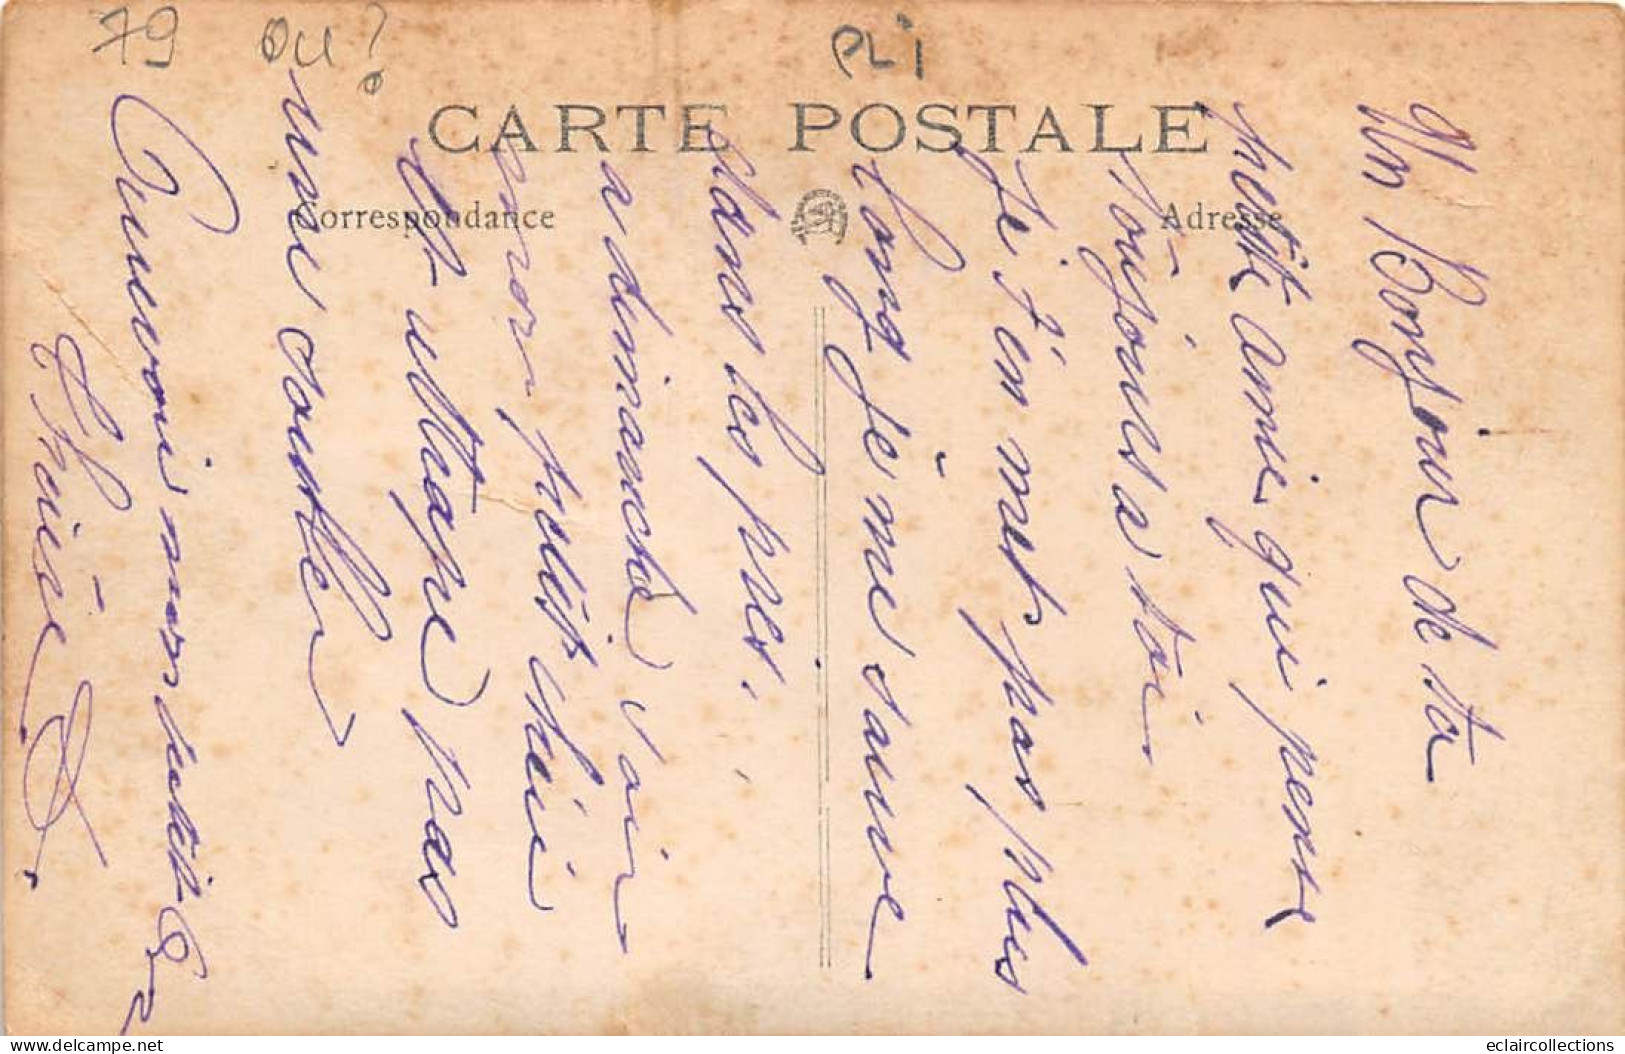 79 OU?
PLi
CARTE POSTALE
Correspondance
Adresse
Un Bonjour de ta
petite amie qui pense
toujours a toi
Je t'en met pas plus
long Je me sauve
dans les pres.
a dimanche soir
mon petit
et attape pas
une
Aurevoir mon petit
delcampe.net
eclaircollections